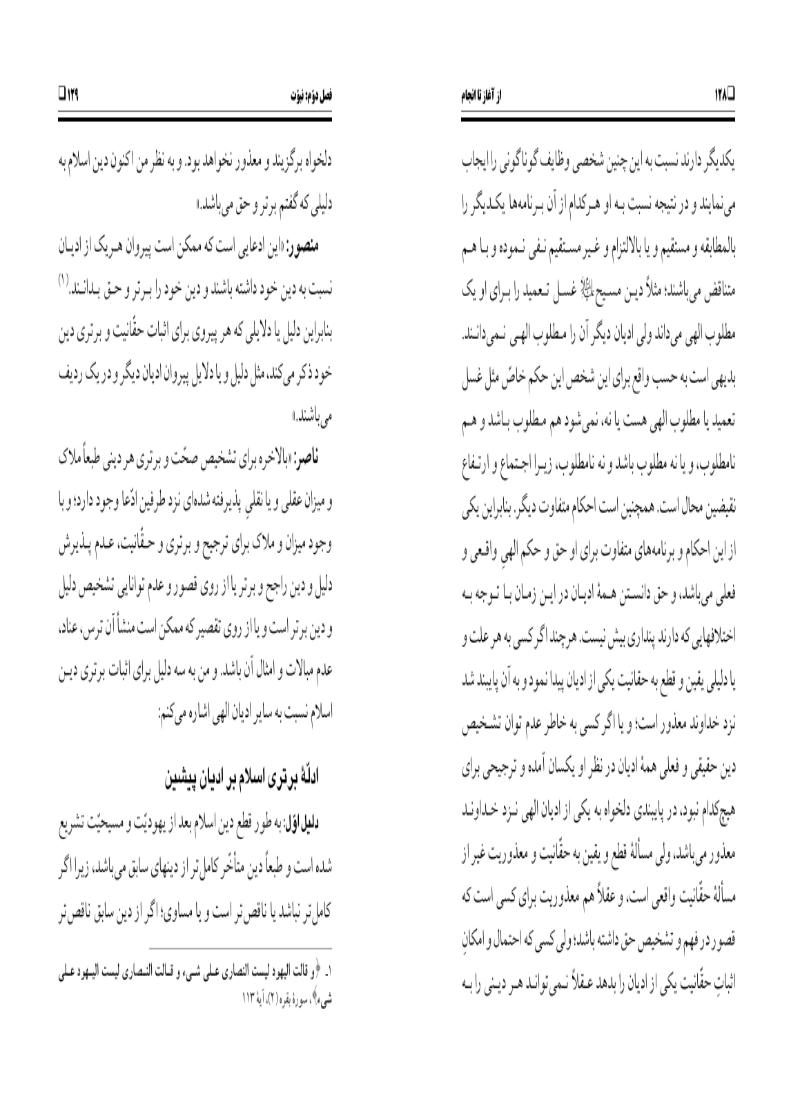 ❑ ۱۲۸ از آغاز تا انجام
یکدیگر دارند نسبت به این چنین شخصی وظایف گوناگونی را ایجاب
می‌نمایند و در نتیجه نسبت به او هرکدام از آن برنامه‌ها یکدیگر را
بالمطابقه و مستقیم و یا بالالتزام و غیر مستقیم نفی نموده و با هم
متناقض می‌باشند؛ مثلاً دین مسیح غسل تعمید را برای او یک
مطلوب الهی می‌داند ولی ادیان دیگر آن را مطلوب الهی نمی‌دانند.
بدیهی است به حسب واقع برای این شخص این حکم خاصّ مثل غسل
تعمید یا مطلوب الهی هست یا نه، نمی‌شود هم مطلوب باشد و هم
نامطلوب، و یا نه مطلوب باشد و نه نامطلوب، زیرا اجتماع و ارتفاع
نقیضین محال است. همچنین است احکام متفاوت دیگر. بنابراین یکی
از این احکام و برنامه‌های متفاوت برای او حق و حکم الهیِ واقعی و
فعلی می‌باشد، و حق دانستن همهٔ ادیان در این زمان با توجه به
اختلافهایی که دارند پنداری بیش نیست. هرچند اگر کسی به هر علت و
یا دلیلی یقین و قطع به حقانیت یکی از ادیان پیدا نمود و به آن پایبند شد
نزد خداوند معذور است؛ و یا اگر کسی به خاطر عدم توان تشخیص
دین حقیقی و فعلی همهٔ ادیان در نظر او یکسان آمده و ترجیحی برای
هیچ‌کدام نبود، در پایبندی دلخواه به یکی از ادیان الهی نزد خداوند
معذور می‌باشد، ولی مسألهٔ قطع و یقین به حقّانیت و معذوریت غیر از
مسألهٔ حقّانیت واقعی است، و عقلاً هم معذوریت برای کسی است که
قصور در فهم و تشخیص حق داشته باشد؛ ولی کسی که احتمال و امکانِ
اثباتِ حقّانیت یکی از ادیان را بدهد عقلاً نمی‌تواند هر دینی را به
فصل دوّم: نبوّت ۱۲۹ ❑
دلخواه برگزیند و معذور نخواهد بود. و به نظر من اکنون دین اسلام به
دلیلی که گفتم برتر و حق می‌باشد.»
منصور: «این ادعایی است که ممکن است پیروان هریک از ادیان
نسبت به دین خود داشته باشند و دین خود را برتر و حق بدانند.(۱)
بنابراین دلیل یا دلایلی که هر پیروی برای اثبات حقّانیت و برتری دین
خود ذکر می‌کند، مثل دلیل و یا دلایل پیروان ادیان دیگر و در یک ردیف
می‌باشند.»
ناصر: «بالاخره برای تشخیص صحّت و برتری هر دینی طبعاً ملاک
و میزان عقلی و یا نقلیِ پذیرفته شده‌ای نزد طرفین ادّعا وجود دارد؛ و با
وجود میزان و ملاک برای ترجیح و برتری و حقّانیت، عدم پذیرش
دلیل و دین راجح و برتر یا از روی قصور و عدم توانایی تشخیص دلیل
و دین برتر است و یا از روی تقصیر که ممکن است منشأ آن ترس، عناد،
عدم مبالات و امثال آن باشد. و من به سه دلیل برای اثبات برتری دین
اسلام نسبت به سایر ادیان الهی اشاره می‌کنم:
ادلّهٔ برتری اسلام بر ادیان پیشین
دلیل اوّل: به طور قطع دین اسلام بعد از یهودیّت و مسیحیّت تشریع
شده است و طبعاً دین متأخّر کامل‌تر از دینهای سابق می‌باشد، زیرا اگر
کامل‌تر نباشد یا ناقص‌تر است و یا مساوی؛ اگر از دین سابق ناقص‌تر
۱ـ ﴿و قالت الیهود لیست النصاری علی شیء و قالت النصاری لیست الیهود علی
شیء﴾، سورهٔ بقره (۲)، آیهٔ ۱۱۳